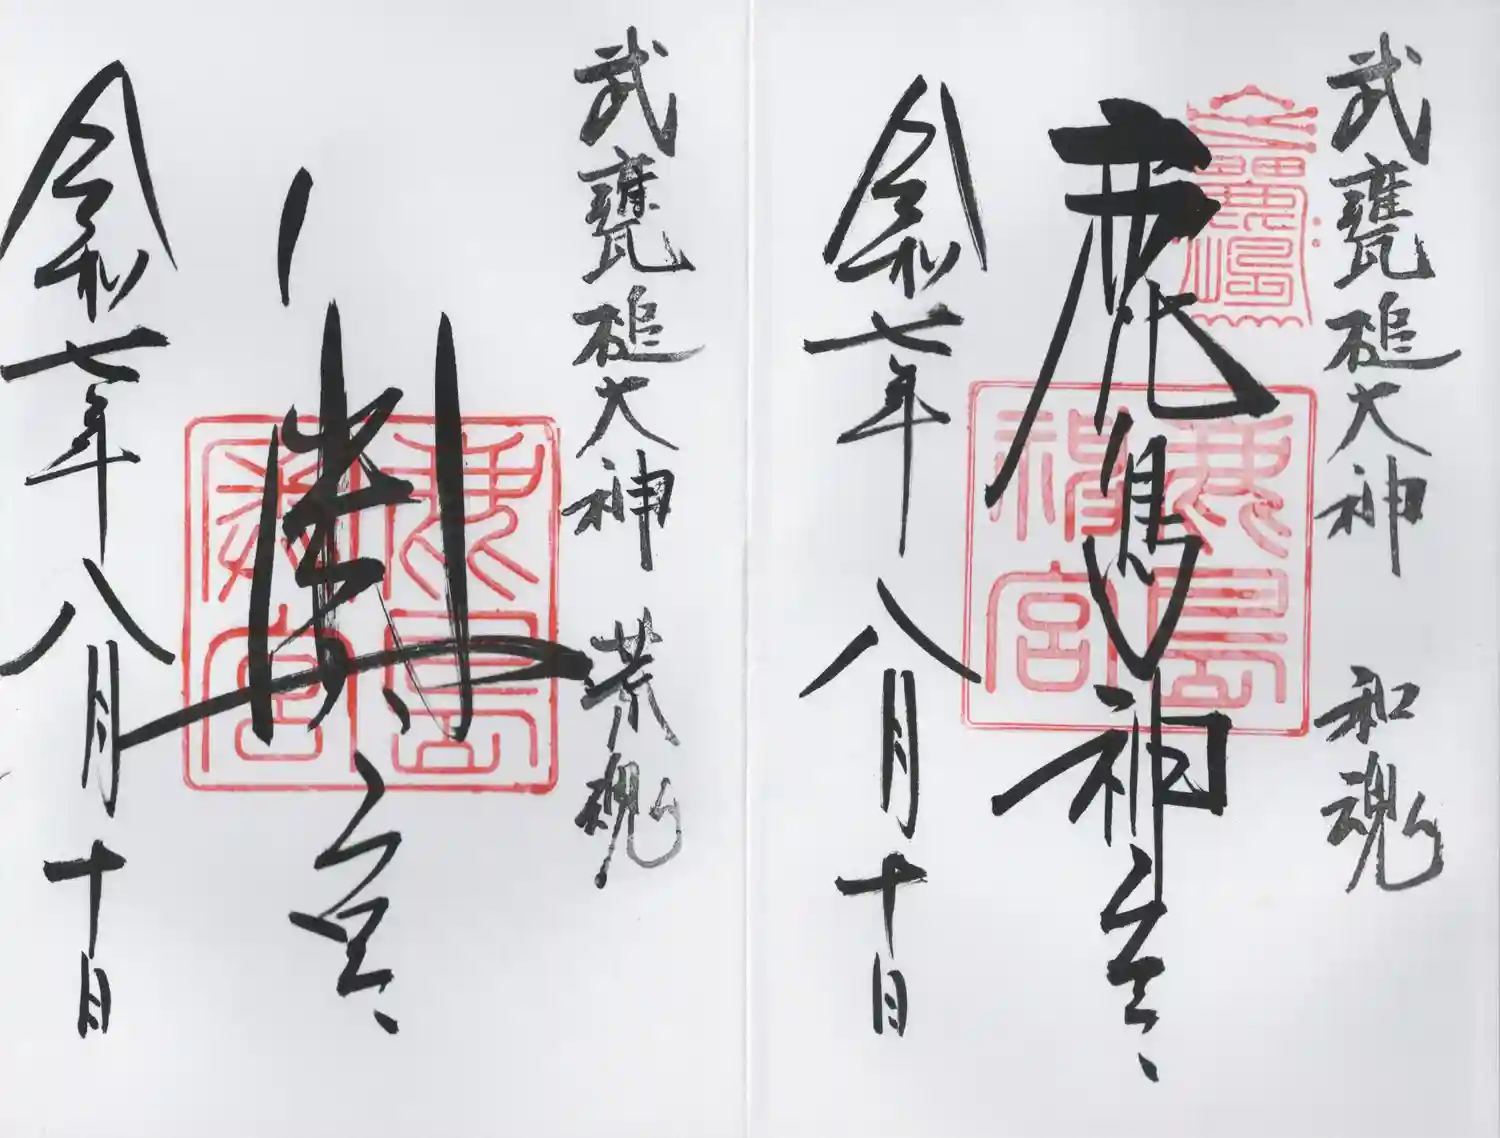 武甕槌大神 和魂
鹿島神宮
鹿島神宮
令和七年八月十日
武甕槌大神 荒魂
奥宮
鹿島奥宮
令和七年八月十日